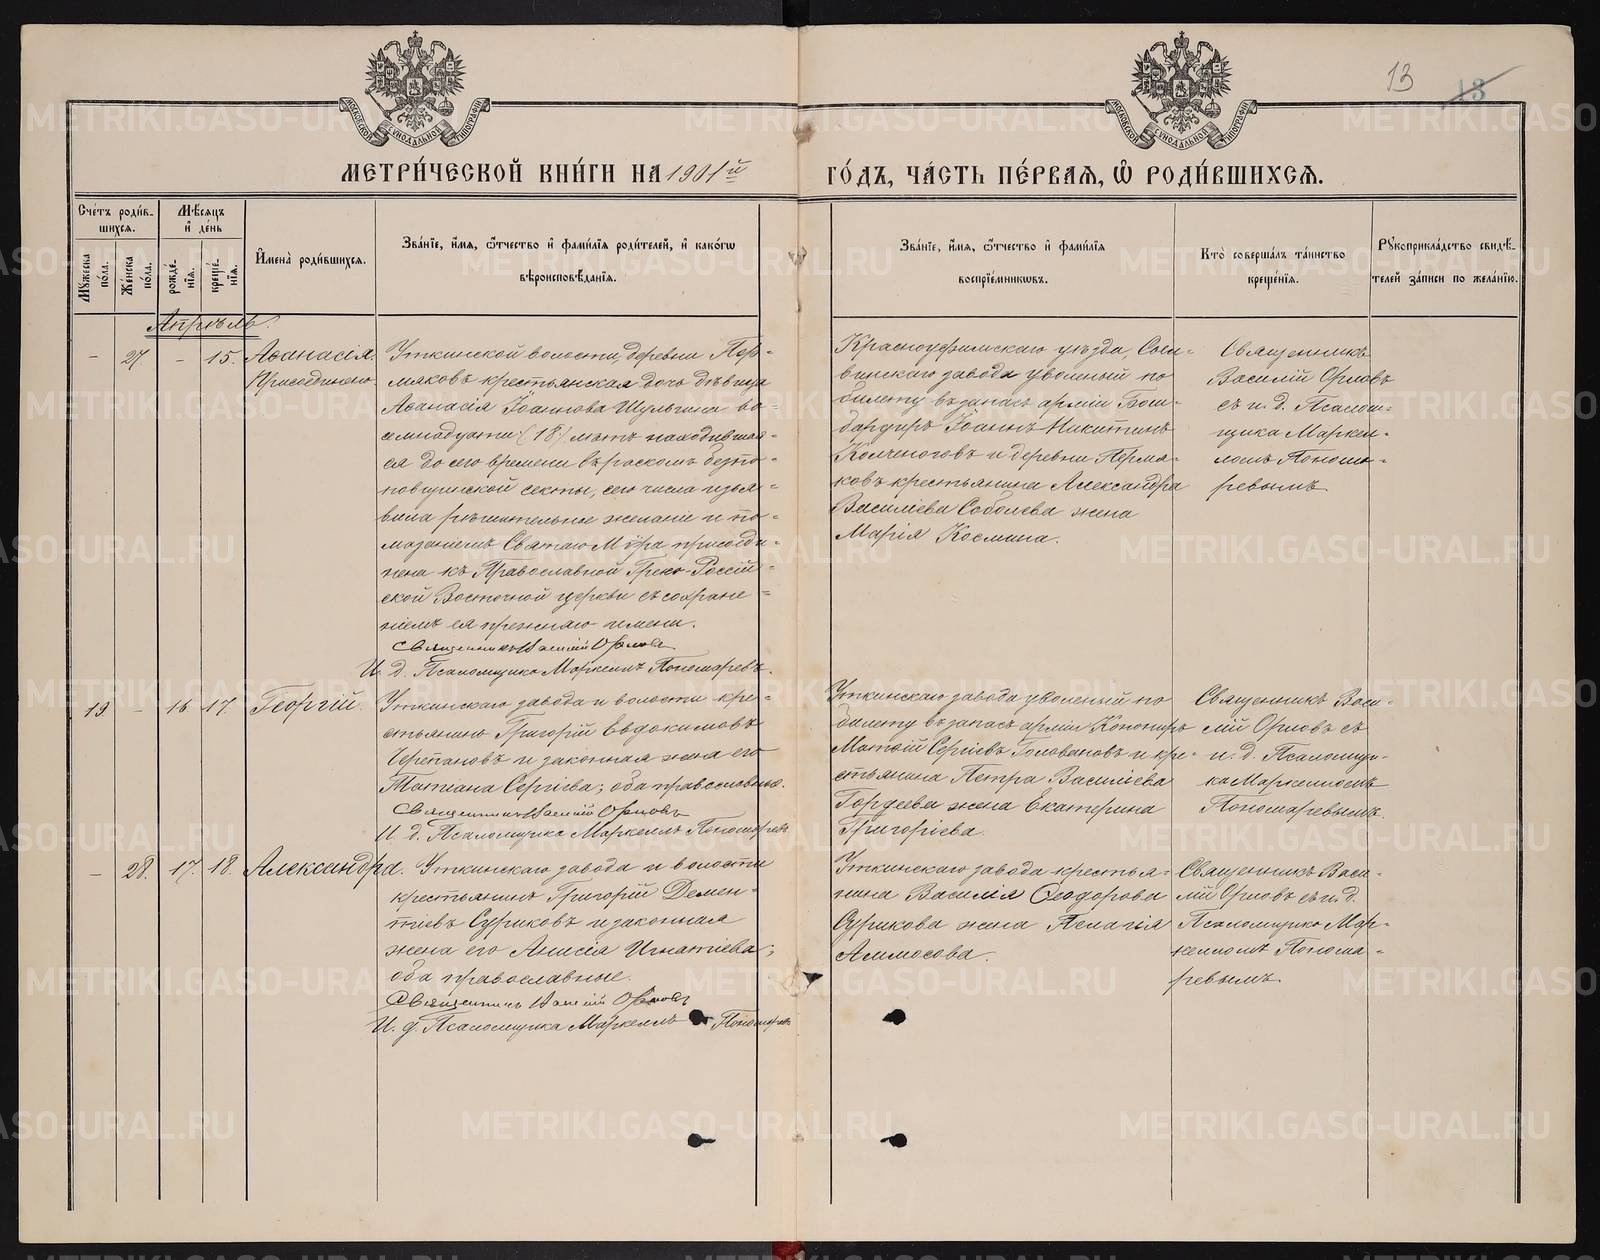 13
13
МОСКОВСКОЙ СѴНОДАЛЬНОЙ ТИПОГРАФІИ
МОСКОВСКОЙ СѴНОДАЛЬНОЙ ТИПОГРАФІИ
МЕТРИ́ЧЕСКОЙ КНИ́ГИ НА 1901й
ГО́ДЪ, ЧА́СТЬ ПЕ́РВАЯ, Ѡ҆ РОДИ́ВШИХСЯ.
Сче́тъ роди́в-
шихся.
Мѣ́сяцъ
и҆ де́нь
Мꙋ́жеска
по́ла.
Же́нска
по́ла.
рожде́-
нїя.
креще́-
нїя.
И҆мена̀ роди́вшихся.
Зва́нїе, и҆́мя, ѻ҆́тчество и҆ фами́лїя роди́телей, и҆ како́гѡ
вѣроисповѣ́данїя.
Зва́нїе, и҆́мя, ѻ҆́тчество и҆ фами́лїя
воспрїе́мникѡвъ.
Кто̀ соверша́лъ та́инство
креще́нїя.
Рꙋкоприкла́дство свидѣ́-
телей за́писи по жела́нїю.
Апрѣль.
– 27. – 15. Аѳанасія.
Присоединена.
Уткинской волости, деревни Пер-
мяковъ крестьянская дочь дѣвица
Аѳанасія Іоаннова Шульгина во-
семнадцати (18) лѣтъ находившая-
ся до сего времени въ расколѣ безпо-
повщинской секты, сего числа изъя-
вила рѣшительное желаніе и по-
мазаніемъ Святаго Мѵра присоеди-
нена къ Православной Греко-Россій-
ской Восточной церкви съ сохране-
ніемъ ея прежняго имени.
Священникъ Василій Орловъ
И. д. Псаломщика Маркеллъ Пономаревъ.
Красноуфимскаго уѣзда, Сыл-
винскаго завода уволеный по
билету въ запасъ арміи Бом-
бардиръ Іоаннъ Никитинъ
Колченоговъ и деревни Перма-
ковъ крестьянина Александра
Василіева Соболева жена
Марія Космина.
Священникъ
Василій Орловъ
съ и. д. Псалом-
щика Маркел-
ломъ Понома-
ревымъ.
19. – 16. 17. Георгій.
Уткинскаго завода и волости кре-
стьянинъ Григорій Евдокимовъ
Черепановъ и законная жена его
Татіана Сергіева; оба православные.
Священникъ Василій Орловъ
И. д. Псаломщика Маркеллъ Пономаревъ
Уткинскаго завода уволеный по
билету въ запасъ арміи Канониръ
Матѳій Сергіевъ Головановъ и кре-
стьянина Петра Василіева
Гордеева жена Екатерина
Григоріева.
Священникъ Васи-
лій Орловъ съ
и. д. Псаломщи-
ка Маркелломъ
Пономаревымъ.
– 28. 17. 18. Александра.
Уткинскаго завода и волости
крестьянинъ Григорій Демен-
тіевъ Суриковъ и законная
жена его Анисія Игнатіева;
оба православные.
Священникъ Василій Орловъ
И. д. Псаломщика Маркеллъ Пономаревъ
Уткинскаго завода крестья-
нина Василія Ѳеодорова
Сурикова жена Пелагія
Аммосова.
Священникъ Васи-
лій Орловъ съ и. д.
Псаломщика Мар-
келломъ Понома-
ревымъ.
METRIKI.GASO-URAL.RU